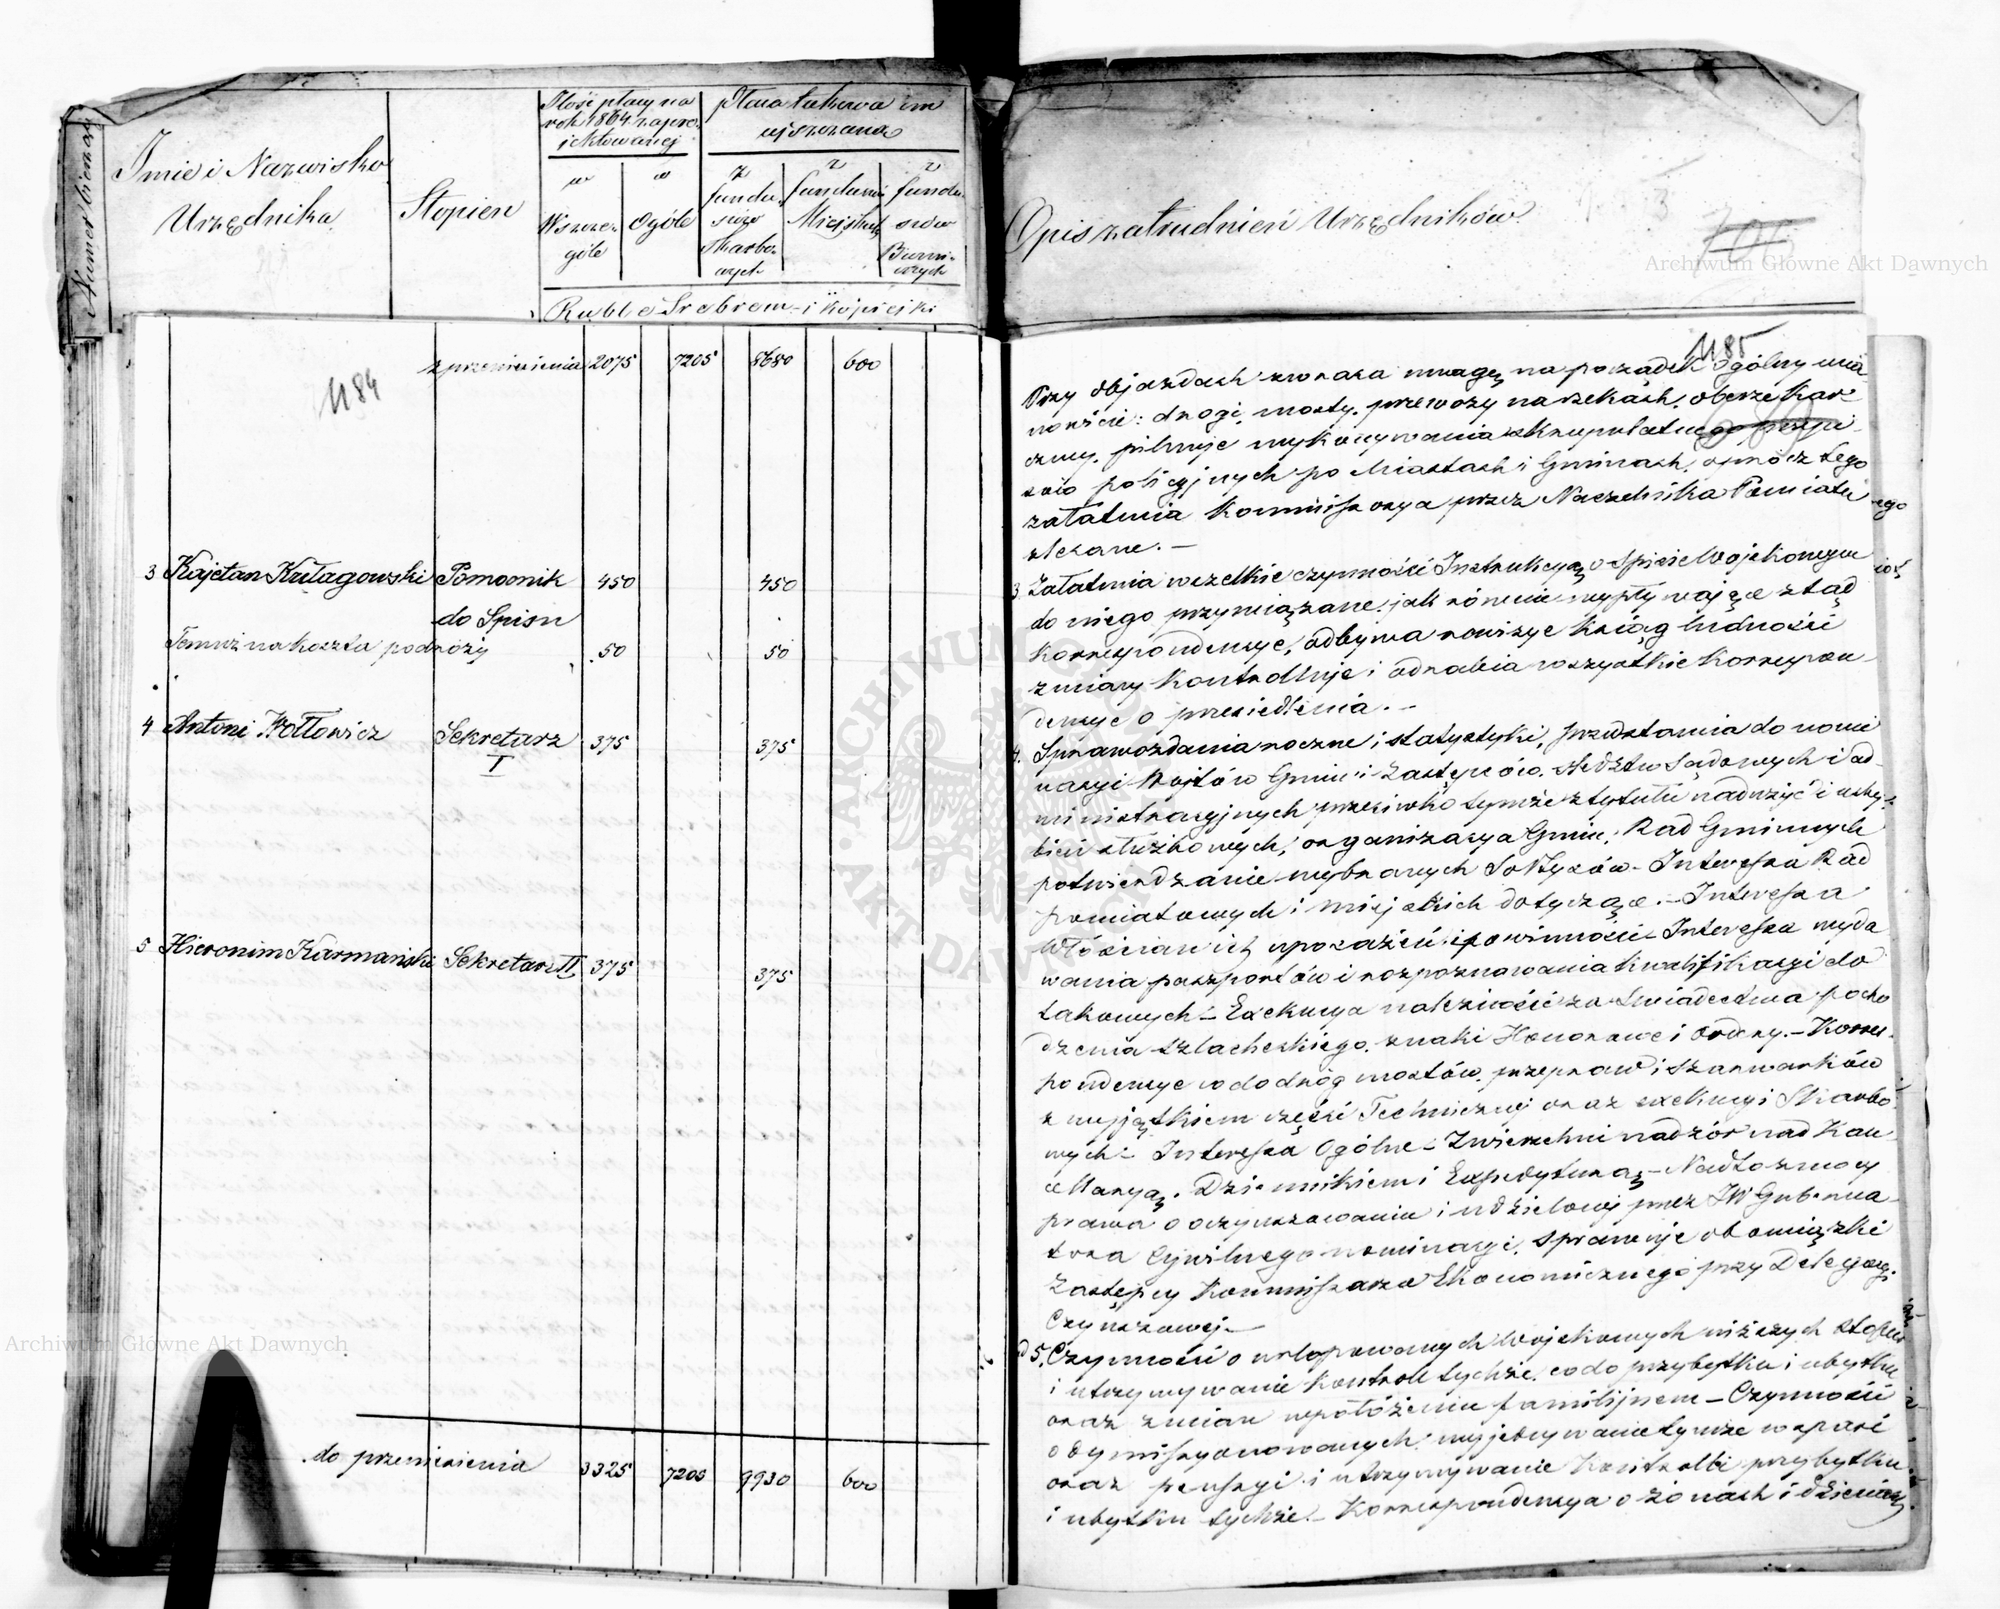 Numer bieżący
Imie i Nazwisko
Urzędnika
Stopień
Ilość płacy na
rok 1864 zapro-
iektowanej
w
Wszcze-
góle
w
Ogóle
Płaca takowa im
uiszczana
z
fundu-
szów
Skarbo-
wych
z
funduszów
Miejskich
z
fundu-
szów
Rubli Srebrem i kopiejki
Opis zatrudnień Urzędników
Archiwum Główne Akt Dawnych
1184
z przeniesienia 2075 7205 8680 600
3 Kajetan Kułagowski Pomocnik 450 450
do Spisu
Temuż na koszta podróży 50 50
4 Antoni Wołłowicz Sekretarz 375 375
I
5 Hieronim Karmański Sekretarz II 375 375
do przeniesienia 3325 7205 9930 600
Archiwum Główne Akt Dawnych
1185
Przy objazdach zwraca uwagę na porządek Ogólny mia-
nowicie: drogi, mosty, przewozy na rzekach, oberże Kar-
czmy, pilnuje wykonywania skrupulatnego przepi-
sów policyjnych po Miastach i Gminach, oprócz tego
załatwia Kommissorya przez Naczelnika Powiatu
zlecane. —
3 Załatwia wszelkie czynności Instrukcyą o Spisie Wojskowym
do niego przywiązane, jak równie wypływające ztąd
Korrespondencye, odbywa rewizye Ksiąg ludności
zmiany Kontrolluje i odrabia wszystkie Korrespon-
dencye o przesiedlenia. —
4. Sprawozdania roczne i statystyki, przedstawia do nomi-
nacyi Wójtów Gmin i Zastępców, śledztw Sądowych i ad-
ministracyjnych przeciwko tymże z tytułu nadużyć i uchy-
bień służbowych, organizacya Gmin, Rad Gminnych
potwierdzanie wybranych Sołtysów - Interessa Rad
powiatowych i miejskich dotyczące. - Interessa
Włościan ich uposażeń i powinności - Interessa wyda-
wania paszportów i rozpoznawania kwalifikacyi do
takowych - Exekucya należności za świadectwa pocho-
dzenia szlacheckiego, znaki Honorowe i ordery. - Korres-
pondencye co do dróg mostów, przepraw i szarwarków
z wyjątkiem części Technicznej oraz exekucyi Skarbo-
wych - Interessa Ogólne - Zwierzchni nadzór nad Kan-
cellaryą, Dziennikiem i Expedyturą - Nadto z mocy
prawa o oczynszowaniu i udzielonej przez JW Guberna-
tora Cywilnego nominacyi, sprawuje obowiązki
Zastępcy Kommissarza Ekonomicznego przy Delegacyi
Czynszowej. —
d 5. Czynności o urlopowanych Wojskowych niższych stopni
i utrzymywanie Kontroll tychże, co do przybytku i ubytku
oraz zmian w położeniu familijnem - Czynności
o dymissyonowanych, wyjednywanie tymże wsparć
oraz pensyi i utrzymywanie Kontrolli przybytku
i ubytku tychże. - Korrespondencya o żonach i dzieciach
ARCHIWUM GŁÓWNE AKT DAWNYCH